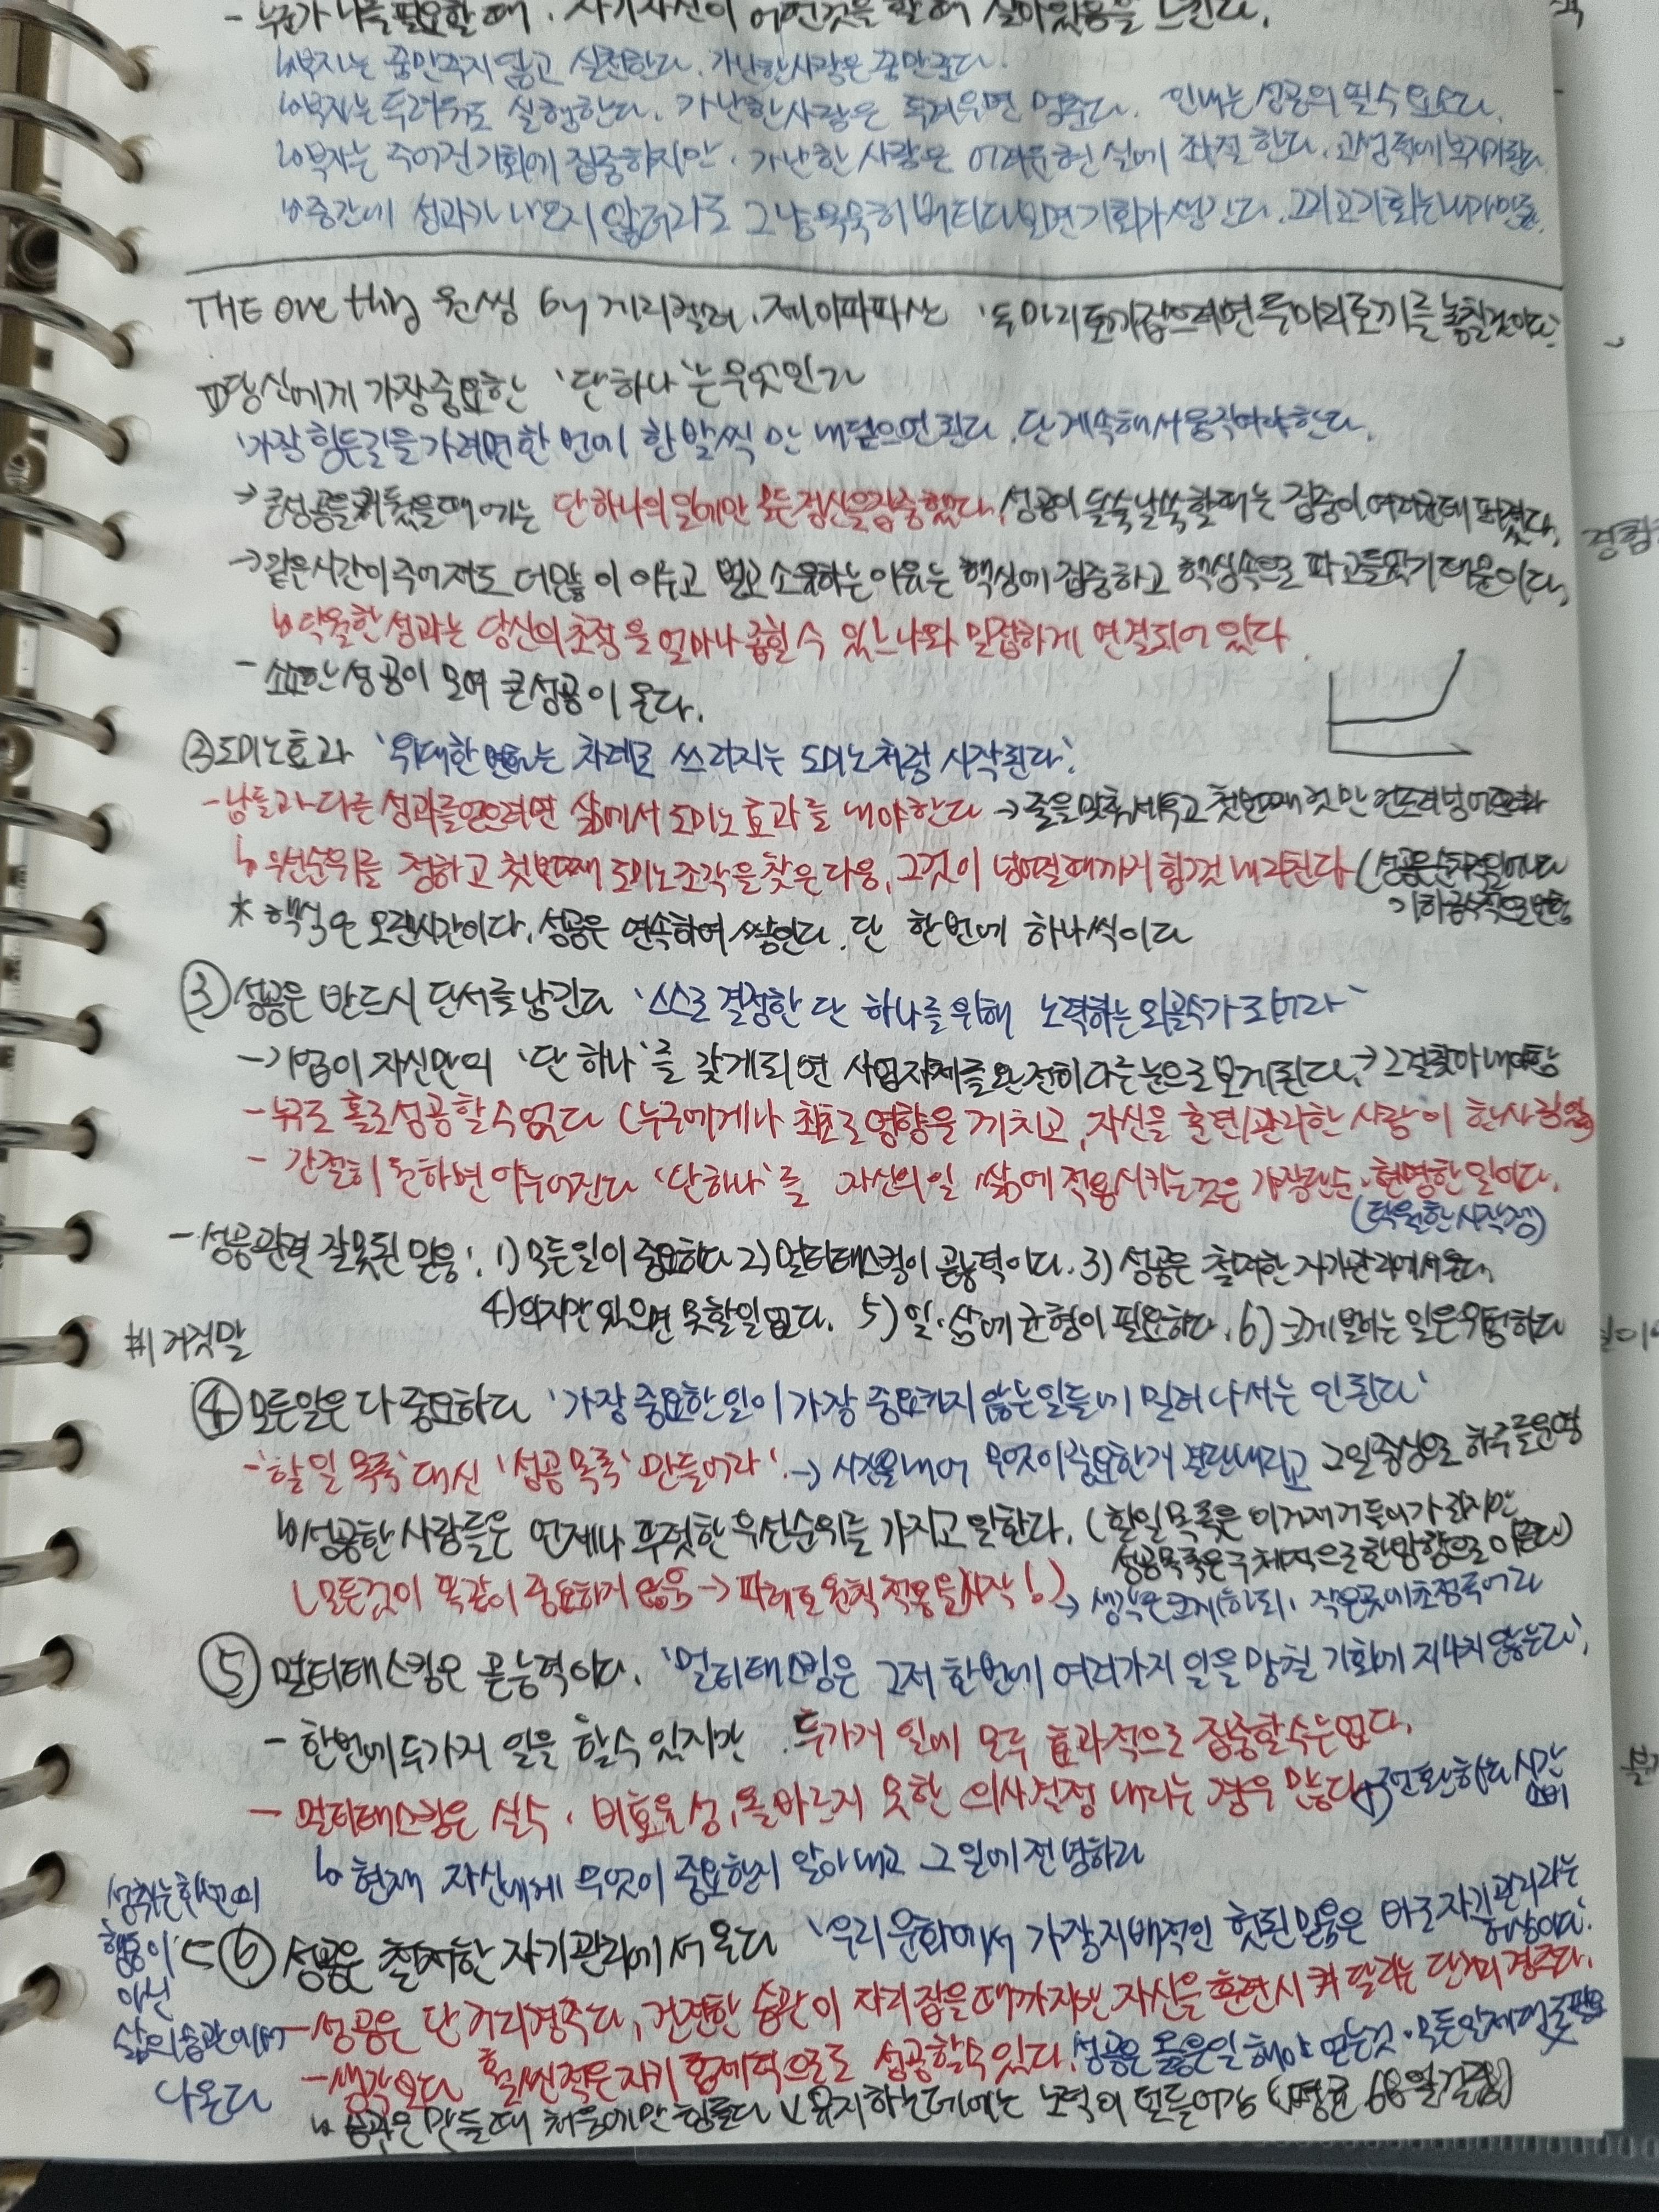 - 누군가 나를 필요할 때, 자기자신이 어떤것을 할 때 살아있음을 느낀다.
↳ 부자는 꿈만꾸지 않고 실천한다. 가난한사람은 꿈만꾼다.
↳ 부자는 두려워도 실행한다. 가난한사람은 두려우면 멈춘다. 인내는 성공의 필수요소다.
↳ 부자는 주어진 기회에 집중하지만, 가난한 사람은 어려운 현실에 좌절한다.
↳ 중간에 성과가 나오지 않더라도 그냥 묵묵히 버티다보면 기회가 생긴다. 그리고 기회는 내가 만듦.
THE one thing 원씽 by 게리켈러, 제이파파산 '두마리 토끼 잡으려면 두마리 토끼를 놓칠것이다.'
① 당신에게 가장중요한 '단 하나'는 무엇인가
'가장 힘든길을 가려면 한 번에 한 발씩 만 내딛으면 된다. 단 계속해서 움직여야 한다.
→ 큰성공을 거뒀을때 에는 단 하나의 일에만 모든 정신을 집중했다. 성공이 들쑥날쑥할때는 집중이 여러군데 퍼졌다.
→ 같은시간이 주어져도 더많이 이루고 벌고 소유하는 이유는 핵심에 집중하고 핵심속으로 파고들었기 때문이다.
↳ 탁월한 성과는 당신의 초점을 얼마나 좁힐 수 있느냐와 밀접하게 연결되어 있다.
- 소소한 성공이 모여 큰성공이 온다.
② 도미노효과 '위대한 변화는 차례로 쓰러지는 도미노처럼 시작된다.'
- 남들과 다른 성과를 얻으려면 삶에서 도미노 효과를 내야한다 → 줄을 맞춰 세우고 첫번째 것만 건드려
↳ 우선순위를 정하고 첫번째 도미노조각을 찾은 다음, 그것이 넘어질때까지 힘껏 내리친다 (성공은 순차적일어난다
기하급수적으로
* 핵심은 오랜시간이다. 성공은 연속하여 쌓인다. 단 한번에 하나씩이다
③ 성공은 반드시 단서를 남긴다 '스스로 결정한 단 하나를 위해 노력하는 외골수가 되어라'
- 기업이 자신만의 '단 하나'를 갖게되면 사업자체를 완전히 다른눈으로 보게된다. → 그걸찾아내야함
- 누구도 홀로성공할 수 없다 (누구에게나 최초로 영향을 끼치고, 자신을 훈련/관리한 사람이 한사람있음)
- 간절히 원하면 이루어진다 '단하나'를 자신의 일 삶에 적용시키는것은 가장단순·현명한 일이다.
(탁월한 시작점)
- 성공관련 잘못된 믿음 : 1) 모든일이 중요하다 2) 멀티태스킹이 곧능력이다. 3) 성공은 철저한 자기관리에서온다.
4) 의지만 있으면 못할일 없다. 5) 일·삶에 균형이 필요하다. 6) 크게 벌이는 일은 위험하다
#1 거짓말
④ 모든일은 다 중요하다 '가장 중요한일이 가장 중요하지 않은일들에 밀려나서는 안된다'
- '할 일 목록' 대신 '성공 목록' 만들어라'. → 시간을내어 무엇이 중요한지 결단내리고 그일 중심으로 하루를운영
↳ 성공한 사람들은 언제나 뚜렷한 우선순위를 가지고 일한다. (할일목록은 이거저거 들어가 있지만
성공목록은 구체적으로 한방향으로 이끈다)
(모든것이 똑같이 중요하지 않음 → 파레토 원칙 적용을 시작!) → 생각은 크게하되, 작은곳에 초점두어라
⑤ 멀티태스킹은 곧능력이다. '멀티태스킹은 그저 한번에 여러가지 일을 망칠 기회에 지나지 않는다'.
- 한번에 두가지 일을 할수 있지만, 두가지 일에 모두 효과적으로 집중할수는없다.
- 멀티태스킹은 실수, 비효율성, 올바르지 못한 의사결정 내리는 경우 많다 전환하는 시간
소비
↳ 현재 자신에게 무엇이 중요한지 알아내고 그일에 전념하라
성취는 한번의
행동이
아닌
삶의 습관에서
나온다
⑥ 성공은 철저한 자기관리에서 온다 '우리 문화에서 가장 지배적인 헛된 믿음은 바로 자기관리라는
허상이다.'
- 성공은 단거리경주다, 건전한 습관이 자리잡을때까지만 자신을 훈련시켜 달리는 단거리경주다.
- 생각보다 훨씬 적은 자기 통제력으로도 성공할수 있다. 성공은 옳은일 해야 얻는것.
↳ 습관은 만들때 처음에만 힘들다 유지하는데에는 노력이 덜들어감 (평균 66일 걸림)